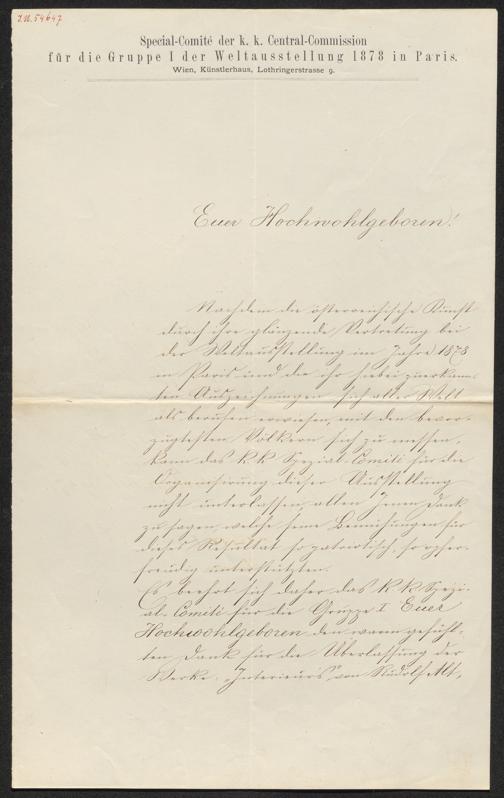 I.N. 54647
Special-Comité der k. k. Central-Commission
für die Gruppe I der Weltausstellung 1878 in Paris.
Wien, Künstlerhaus, Lothringerstrasse 9.
Euer Hochwohlgeboren!
Nachdem die österreichische Kunst
durch ihre glänzende Vertretung bei
der Weltausstellung im Jahre 1878
in Paris und die ihr hiebei zuerkann-
ten Auszeichnungen sich aller Welt
als berufen erwiesen, mit den bevor-
zugtesten Völkern sich zu messen,
kann das k. k. Spezial-Comité für die
Organisirung dieser Ausstellung
nicht unterlassen, allen Jenen Dank
zu sagen, welche seine Bemühungen für
dieses Resultat so patriotisch, so opfer-
freudig unterstützten.
Es beehrt sich daher das k. k. Spezi-
al-Comité für die Gruppe I Euer
Hochwohlgeboren den warm gefühl-
ten Dank für die Überlassung der
Werke: „Interieurs" von Rudolf Alt,